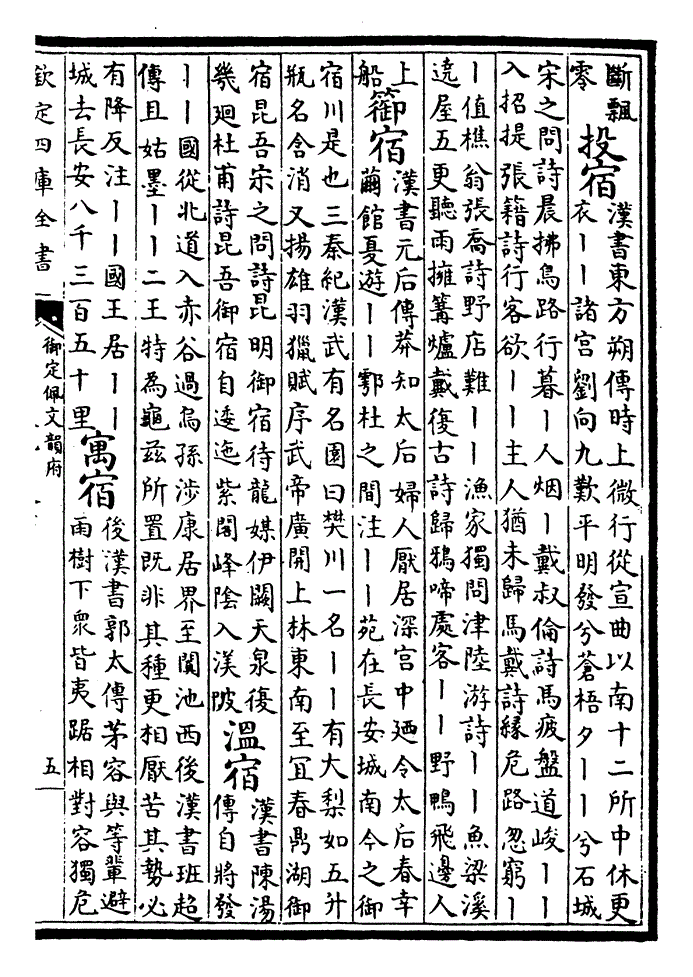 斷飄
零
投宿
漢書東方朔傳時上微行從宣曲以南十二所中休更
衣丨丨諸宫劉向九歎平明發兮蒼梧夕丨丨兮石城
宋之問詩晨拂鳥路行暮丨人烟丨戴叔倫詩馬疲盤道峻丨丨
入招提張籍詩行客欲丨丨主人猶未歸馬戴詩緣危路忽窮丨
丨值樵翁張喬詩野店難丨丨漁家獨問津陸游詩丨丨魚梁溪
遶屋五更聽雨擁篝爐戴復古詩歸鴉啼處客丨丨野鴨飛邊人
上
船
篽宿
漢書元后傳莽知太后婦人厭居深宫中廼令太后春幸
繭館夏遊丨丨鄠杜之間注丨丨苑在長安城南今之御
宿川是也三秦紀漢武有名園曰樊川一名丨丨有大梨如五升
瓶名含消又揚雄羽獵賦序武帝廣開上林東南至宜春鼎湖御
宿昆吾宋之問詩昆明御宿待龍媒伊闕天泉復
幾廻杜甫詩昆吾御宿自逶迤紫閣峰陰入渼陂
溫宿
漢書陳湯
傳自將發
丨丨國從北道入赤谷過烏孫涉康居界至闐池西後漢書班超
傳且姑墨丨丨二王特為龜兹所置既非其種更相厭苦其勢必
有降反注丨丨國王居丨丨
城去長安八千三百五十里
寓宿
後漢書郭太傳茅容與等輩避
雨樹下衆皆夷踞相對容獨危
欽定四庫全書
御定佩文韻府
五